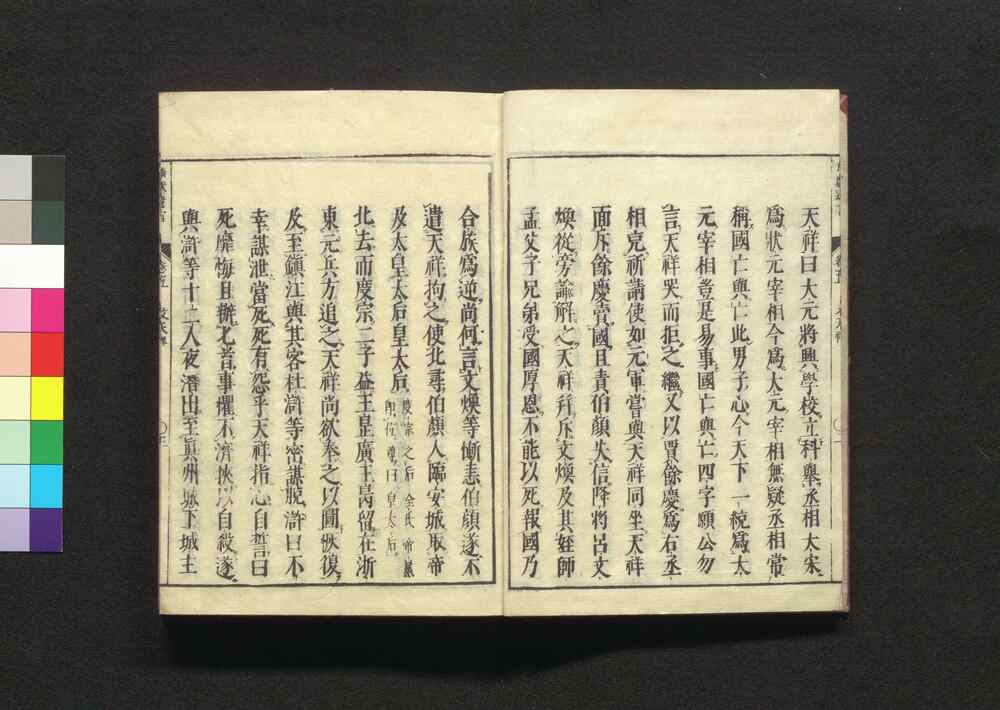 天祥曰大元將興學校立科舉丞相大宋
爲狀元宰相今爲大元宰相無疑丞相常
稱國亡與亡此男子心今天下一統爲大
元宰相豈是易事國亡與亡四字願公勿
言天祥哭而拒之繼又以賈餘慶爲右丞
相充祈請使如元軍嘗與天祥同坐天祥
面斥餘慶賣國且責伯顏失信降將呂文
煥從旁諭解之天祥幷斥文煥及其姪師
孟父子兄弟受國厚恩不能以死報國乃
合族爲逆尚何言文煥等慚恚伯顏遂不
遣天祥拘之使北尋伯顏人臨安城取帝
及太皇太后皇太后度宗之后全氏帝㬎卽位尊曰皇太后
北去而度宗二子益王昰廣王昺留在浙
東元兵方追之天祥尚欲奉之以圖恢復
及至鎭江與其客杜滸等密謀脫滸曰不
幸謀泄當死死有怨乎天祥指心自誓曰
死靡悔且辦匕首事懼不濟挾以自殺遂
與滸等十二人夜潛出至眞州城下城主
卷五